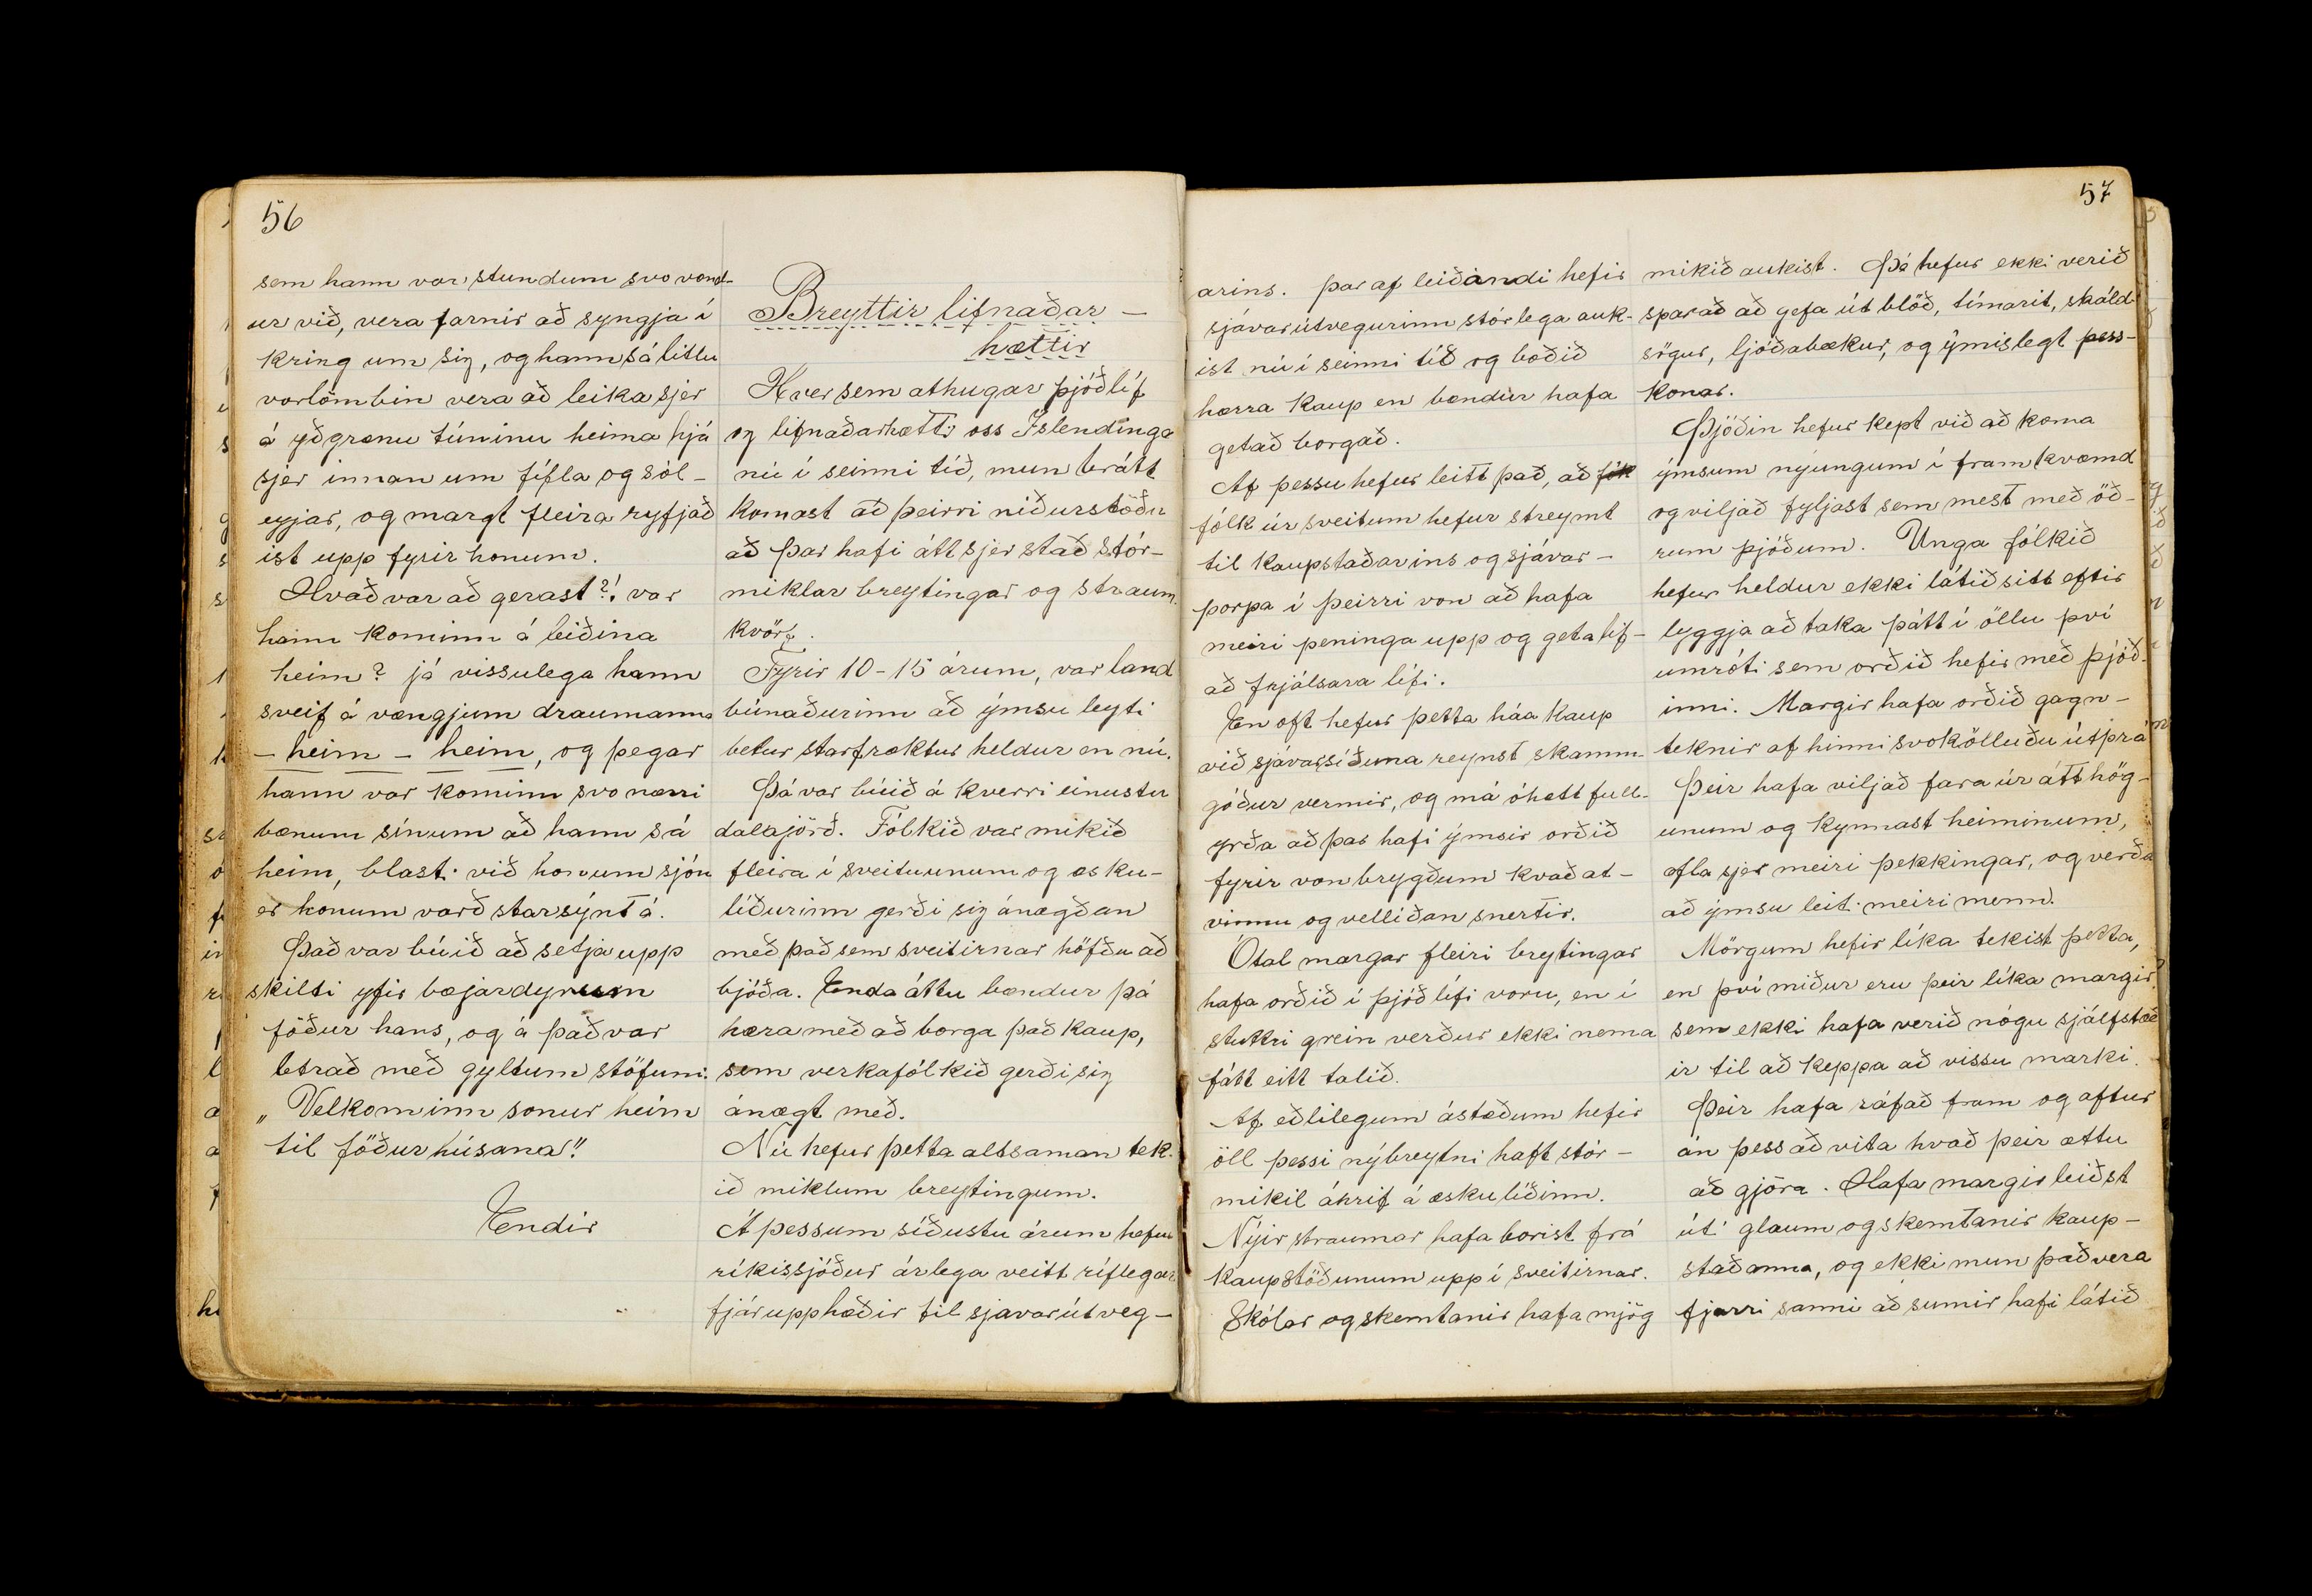 56
sem hann var stundum svo vond-
ur við, vera farnir að syngja í
kring um sig, og hann sá litlu
vorlömbin vera að leika sjer
á yðgrænu túninu heima hjá
sjer innan um fífla og sól-
eyjar, og margt fleira ryfjað
ist upp fyrir honum.
Hvað var að gerast?! var
hann kominn á leiðina
heim? já vissulega hann
sveif á vængjum draumanna
- heim - heim, og þegar
hann var kominn svo nærri
bænum sínum að hann sá
heim, blasti við honum sjón
er honum varð starsýnt á.
Það var búið að setja upp
skilti yfir bæjardyrum
föður hans, og á það var
letrað með gyltum stöfum:
„Velkominn sonur heim
til föðurhúsana"!
Endir
Breyttir lifnaðar-
hættir
Hver sem athugar þjóðlíf
og lifnaðarhætti oss Íslendinga
nú í seinni tíð, mun brátt
komast að þeirri niðurstöðu
að þar hafi átt sjer stað stór-
miklar breytingar og straum
kvörf.
Fyrir 10-15 árum, var land
búnaðurinn að ýmsu leyti
betur starfræktur heldur en nú.
Þá var búið á hverri einustu
dalajörð. Fólkið var mikið
fleira í sveitunum og æsku-
líðurinn gerði sig ánægðan
með það sem sveitirnar höfðu að
bjóða. Enda áttu bændur þá
hæra með að borga það kaup,
sem verkafólkið gerði sig
ánægt með.
Nú hefur þetta altsaman tek-
ið miklum breytingum.
Á þessum síðustu árum hefur
ríkissjóður árlega veitt ríflegar
fjárupphæðir til sjávarútveg-
57
arins. Þar af leiðandi hefir
sjávarútvegurinn stórlega auk-
ist nú í seinni tíð og boðið
hærra kaup en bændur hafa
getað borgað.
Af þessu hefur leitt það, að fók
fólk úr sveitum hefur streymt
til kaupstaðarins og sjávar-
þorpa í þeirri von að hafa
meiri peninga upp og geta lif-
að frjálsara lífi.
En oft hefur þetta háa kaup
við sjávarsíðuna reynst skamm-
góður vermir, og má óhætt full-
yrða að þar hafi ýmsir orðið
fyrir vonbrygðum hvað at-
vinnu og vellíðan snertir.
Ótal margar fleiri breytingar
hafa orðið í þjóðlífi voru, en í
stuttri grein verður ekki nema
fátt eitt talið.
Af eðlilegum ástæðum hefir
öll þessi nýbreytni haft stór-
mikil áhrif á æskulíðinn.
Nýir straumar hafa borist frá
kaupstöðunum upp í sveitirnar.
Skólar og skemtanir hafa mjög
mikið aukist. Þá hefur ekki verið
sparað að gefa út blöð, tímarit, skáld
sögur, ljóðabækur, og ýmislegt þess-
konar.
Þjóðin hefur kept við að koma
ýmsum nýungum í framkvæmd
og viljað fyljast sem mest með öð-
rum þjóðum. Unga fólkið
hefur heldur ekki látið sitt eftir
lyggja að taka þátt í öllu því
umróti sem orðið hefir með þjóð-
inni. Margir hafa orðið gagn-
teknir af hinni svokölluðu útþrá
Þeir hafa viljað fara úr átthög-
unum og kynnast heiminum,
afla sjer meiri þekkingar, og verða
að ýmsu leiti meiri menn.
Mörgum hefir líka tekist þetta,
en því miður eru þeir líka margir
sem ekki hafa verið nógu sjálfstæð
ir til að keppa að vissu marki.
Þeir hafa ráfað fram og aftur
án þess að vita hvað þeir ættu
að gjöra. Hafa margir leiðst
út í glaum og skemtanir kaup-
staðanna, og ekki mun það vera
fjarri sanni að sumir hafi látið